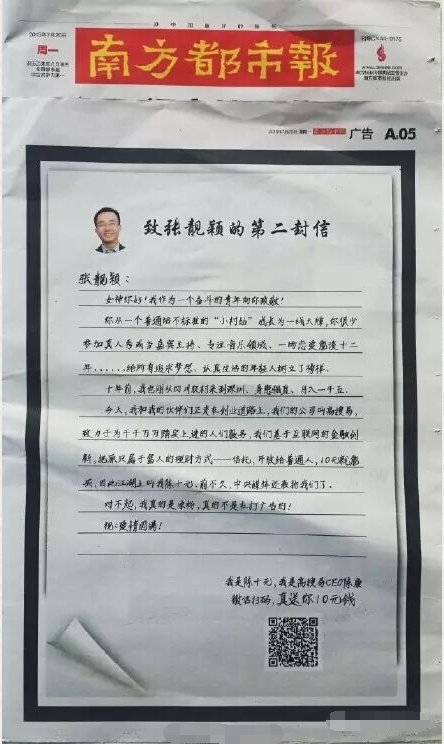 办中国最好的报纸
2015年7月20日
周一
南方都市報
广告 A05
致张靓颖的第二封信
张靓颖：
女神你好！我作为一个奋斗的青年向你致敬！
你从一个普通话不标准的“小村姑”成长为一线大牌，你很少
参加真人秀或当嘉宾主持、专注音乐领域、一场恋爱爱谈十二
年......给所有追求梦想、认真生活的年轻人树立了榜样。
十年前，我也刚从四川农村来到深圳、身无分文、月入一千五。
今天，我和我的伙伴们正走在创业道路上，我们的公司叫高搜易，
致力于为千千万万踏实上进的人们服务，我们基于互联网的金融创
新，把原只属于富人的理财方式——信托，开放给普通人，10元就能
买，因此江湖上叫我陈十元，前不久，中央媒体还表扬我们了。
对不起，我真的是来粉，真的不是来打广告的！
祝：爱情圆满！
我是陈十元，我是高搜易CEO陈康
微信扫码，真送你10元钱